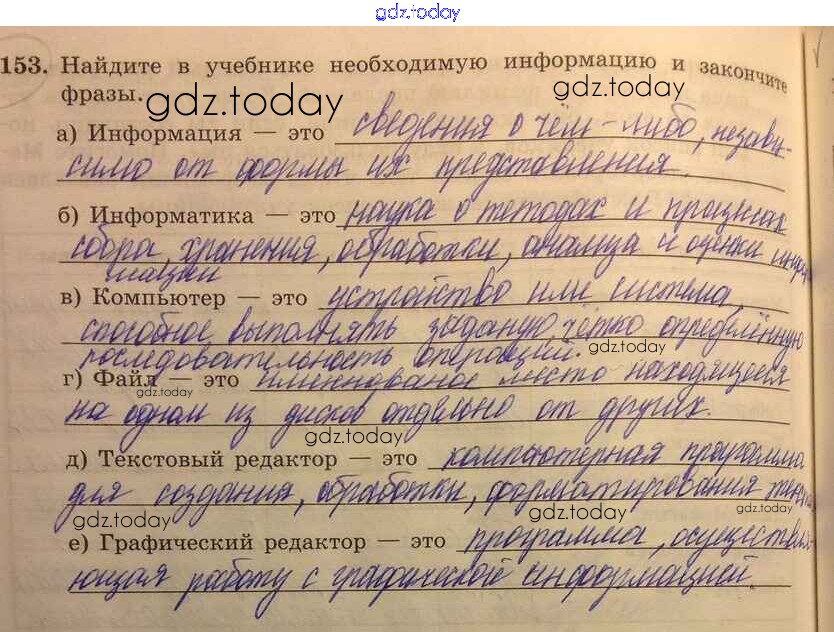 gdz.today
153. Найдите в учебнике необходимую информацию и закончите
фразы.
gdz.today
а) Информация — это сведения о чём-либо, незави-
симо от формы их представления.
б) Информатика — это наука о методах и процессах
сбора, хранения, обработки, анализа и оценки инфор
мации
в) Компьютер — это устройство или система,
способное выполнять заданую, чётко определённую
последовательность операций.
gdz.today
г) Файл — это именнованое место находящееся
gdz.today
на одном из дисков отдельно от других.
gdz.today
д) Текстовый редактор — это компьютерная программа
для создания, обработки, форматирования
gdz.today
gdz.today
gdz.today
е) Графический редактор — это программа, осуществля-
ющая работу с графической информацией